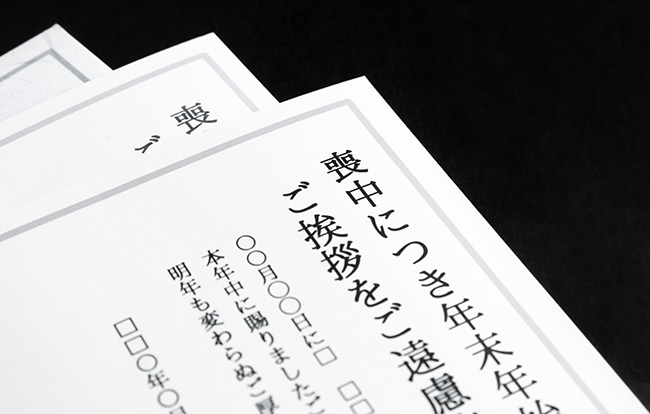 喪中につき年末年始
ご挨拶をご遠慮
〇〇月〇〇日に□ □□
本年中に賜りましたご
明年も変わらぬご厚
□□〇年〇
喪
ご